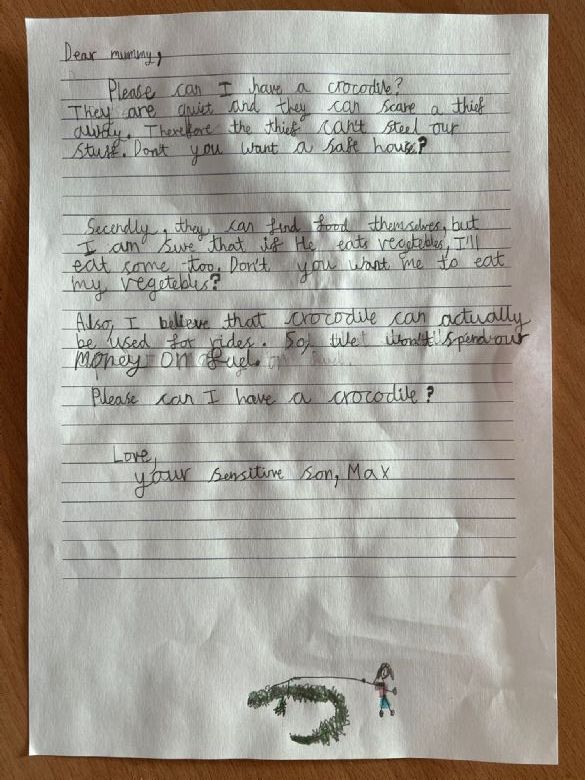 Dear mummy,
Please can I have a crocodile?
They are quiet and they can scare a thief
away. Therefore the thief can't steel our
stuff. Don't you want a safe house?
Secendly, they can find food themselves, but
I am sure that if He eats vegetebles, I'll
eat some too. Don't you want me to eat
my vegetebles?
Also, I believe that crocodile can actually
be used for rides. So, we won't spend our
money on fuel.
Please can I have a crocodile?
Love,
your sensitive son, Max